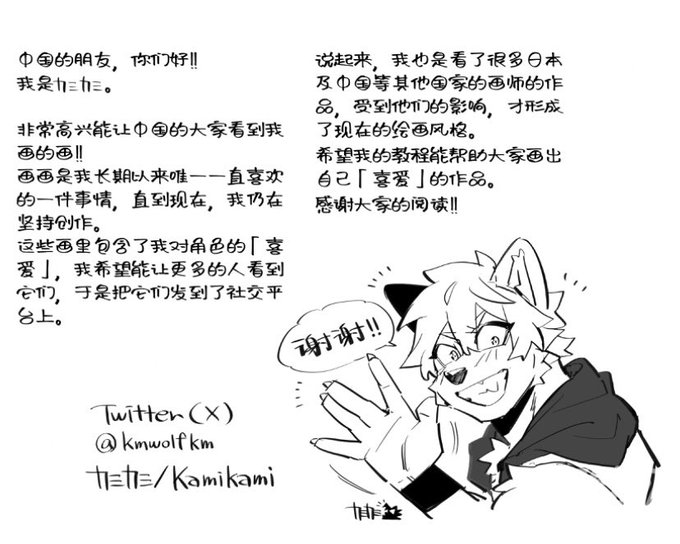 中国的朋友，你们好!!
我是カミカミ。
非常高兴能让中国的大家看到我
画的画!!
画画是我长期以来唯一一直喜欢
的一件事情，直到现在，我仍在
坚持创作。
这些画里包含了我对角色的「喜
爱」，我希望能让更多的人看到
它们，于是把它们发到了社交平
台上。
说起来，我也是看了很多日本
及中国等其他国家的画师的作
品，受到他们的影响，才形成
了现在的绘画风格。
希望我的教程能帮助大家画出
自己「喜爱」的作品。
感谢大家的阅读!!
谢谢!!
Twitter(X)
@kmwolfkm
カミカミ/Kamikami